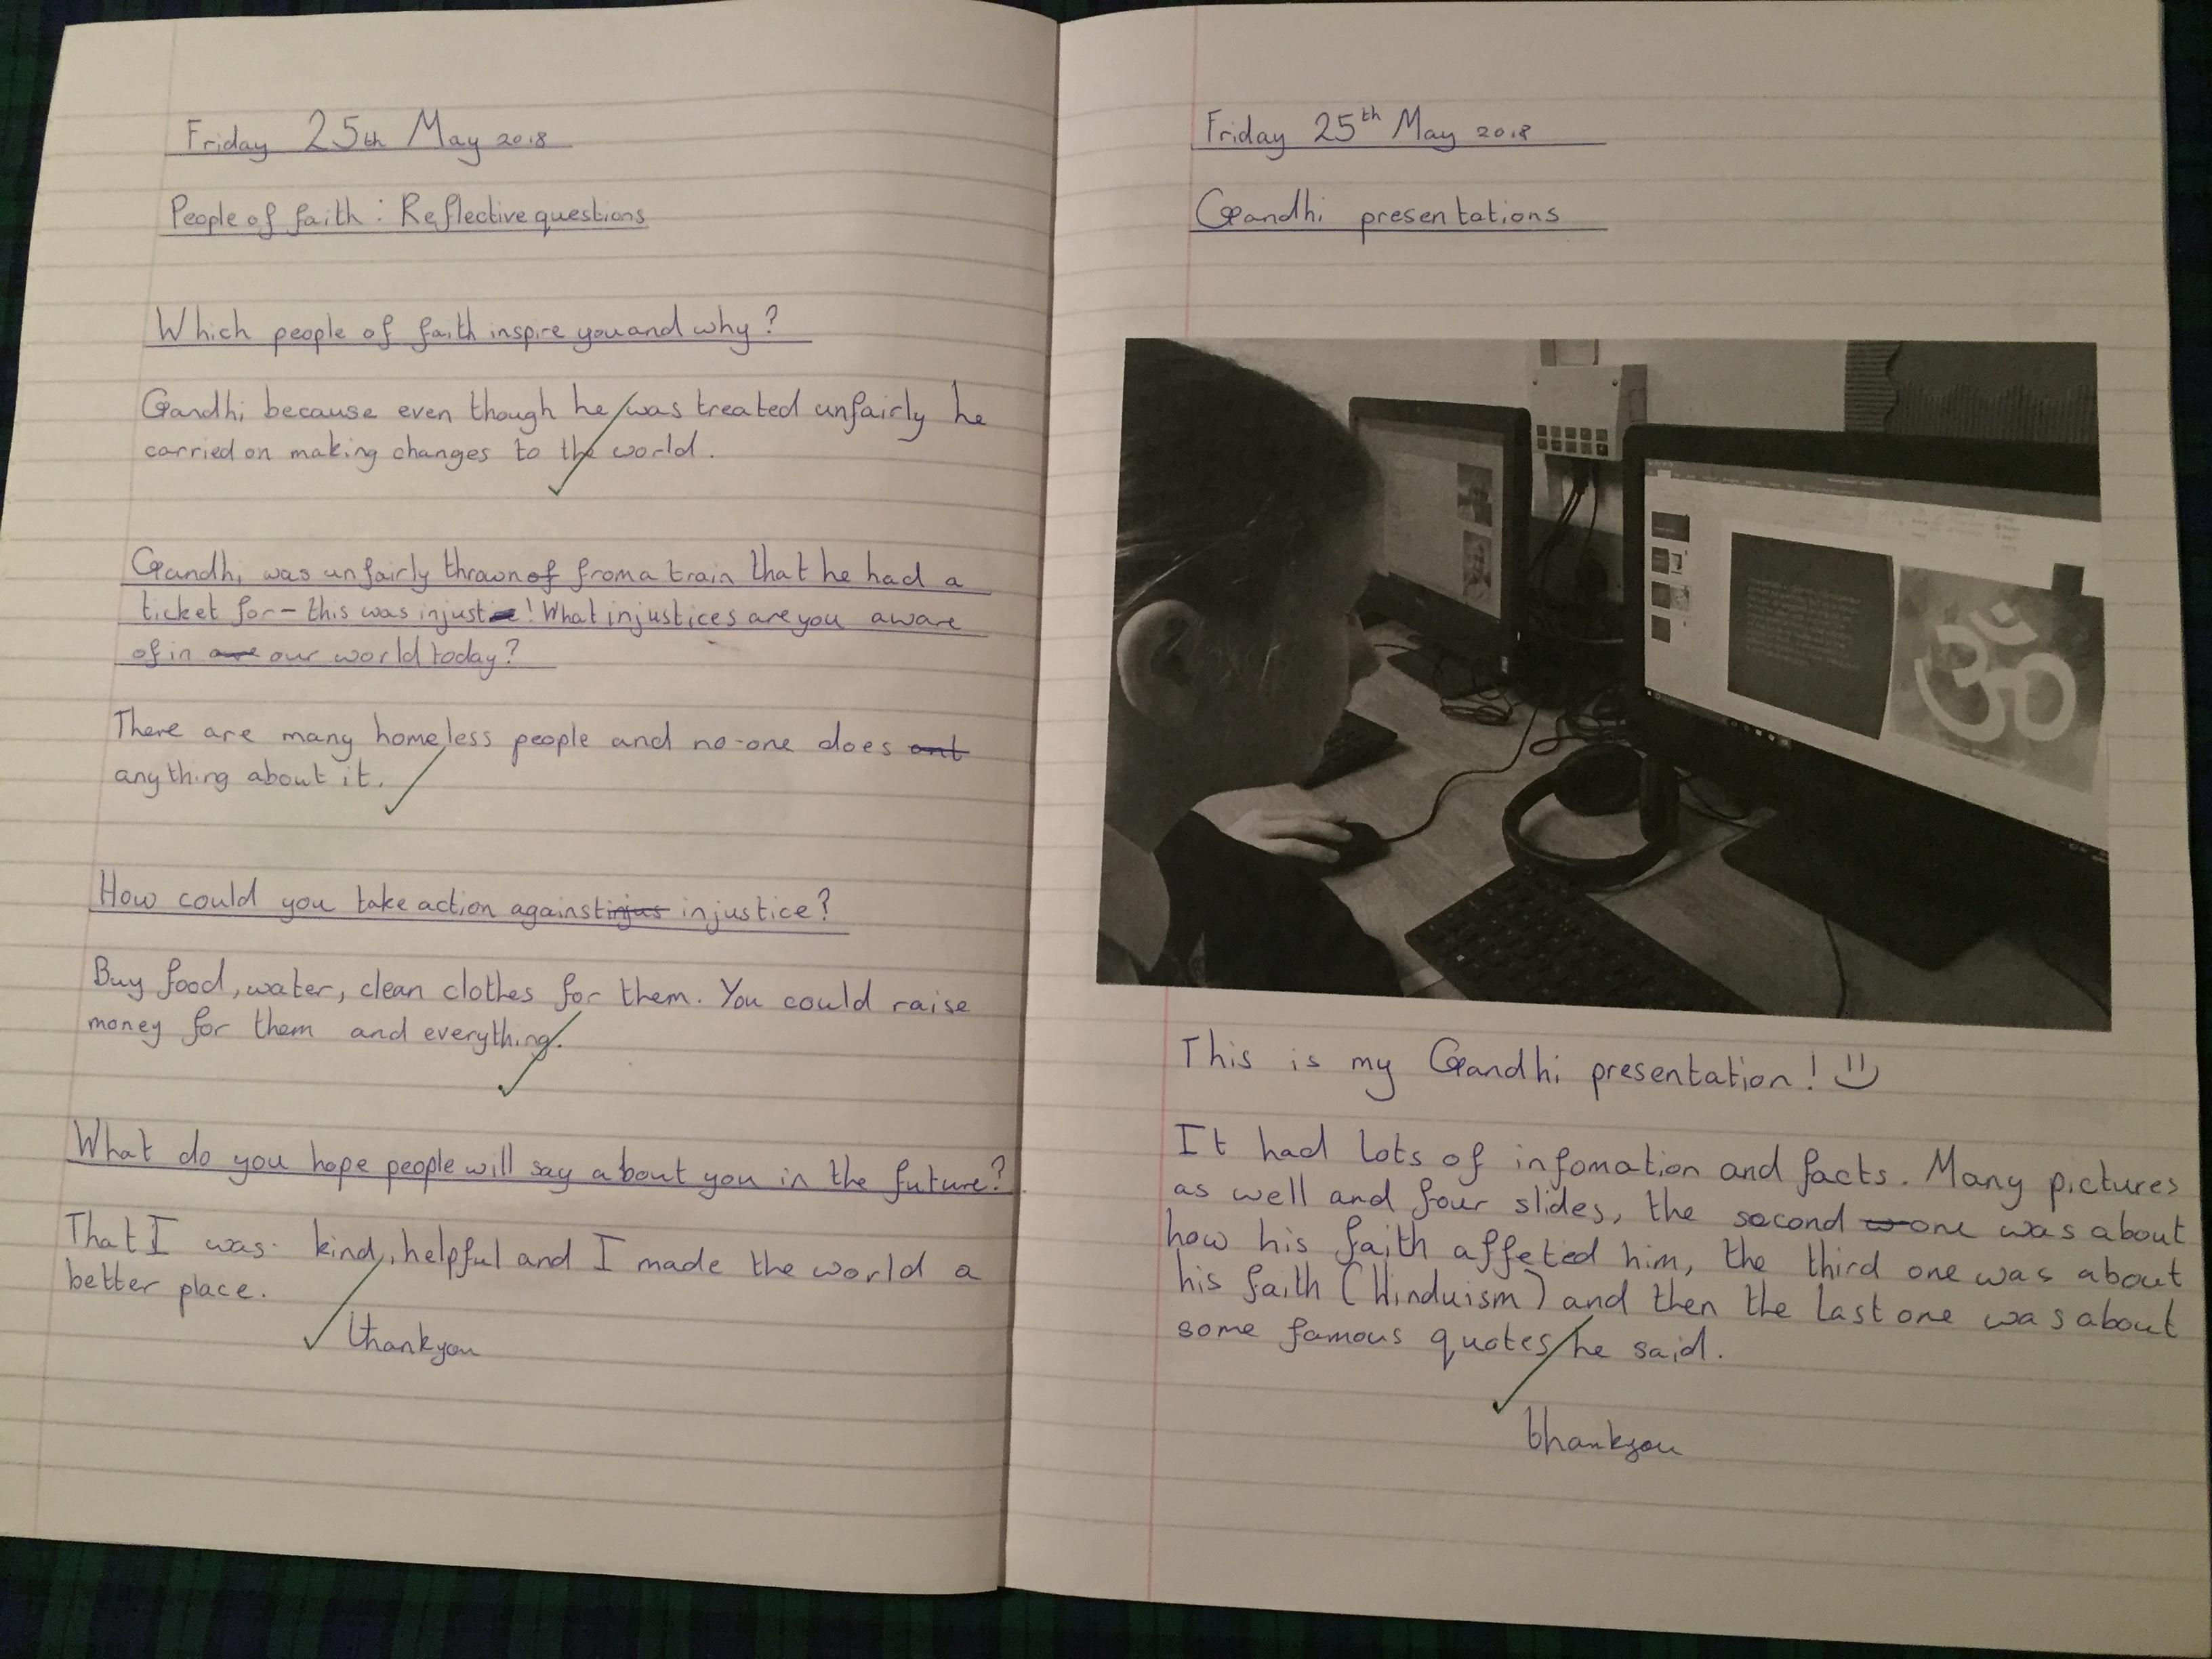 Friday 25th May 2018
People of faith : Reflective questions
Which people of faith inspire you and why?
Gandhi because even though he was treated unfairly he
carried on making changes to the world.
Gandhi was unfairly thrown of from a train that he had a
ticket for - this was injust! What injustices are you aware
of in are our world today?
There are many homeless people and no-one does ant
anything about it.
How could you take action against injus injustice?
Buy food, water, clean clothes for them. You could raise
money for them and everything.
What do you hope people will say about you in the future?
That I was kind, helpful and I made the world a
better place.
thankyou
Friday 25th May 2018
Gandhi presentations
ॐ
This is my Gandhi presentation!
It had lots of infomation and facts. Many pictures
as well and four slides, the second one was about
how his faith affeted him, the third one was about
his faith (Hinduism) and then the last one was about
some famous quotes he said.
thankyou